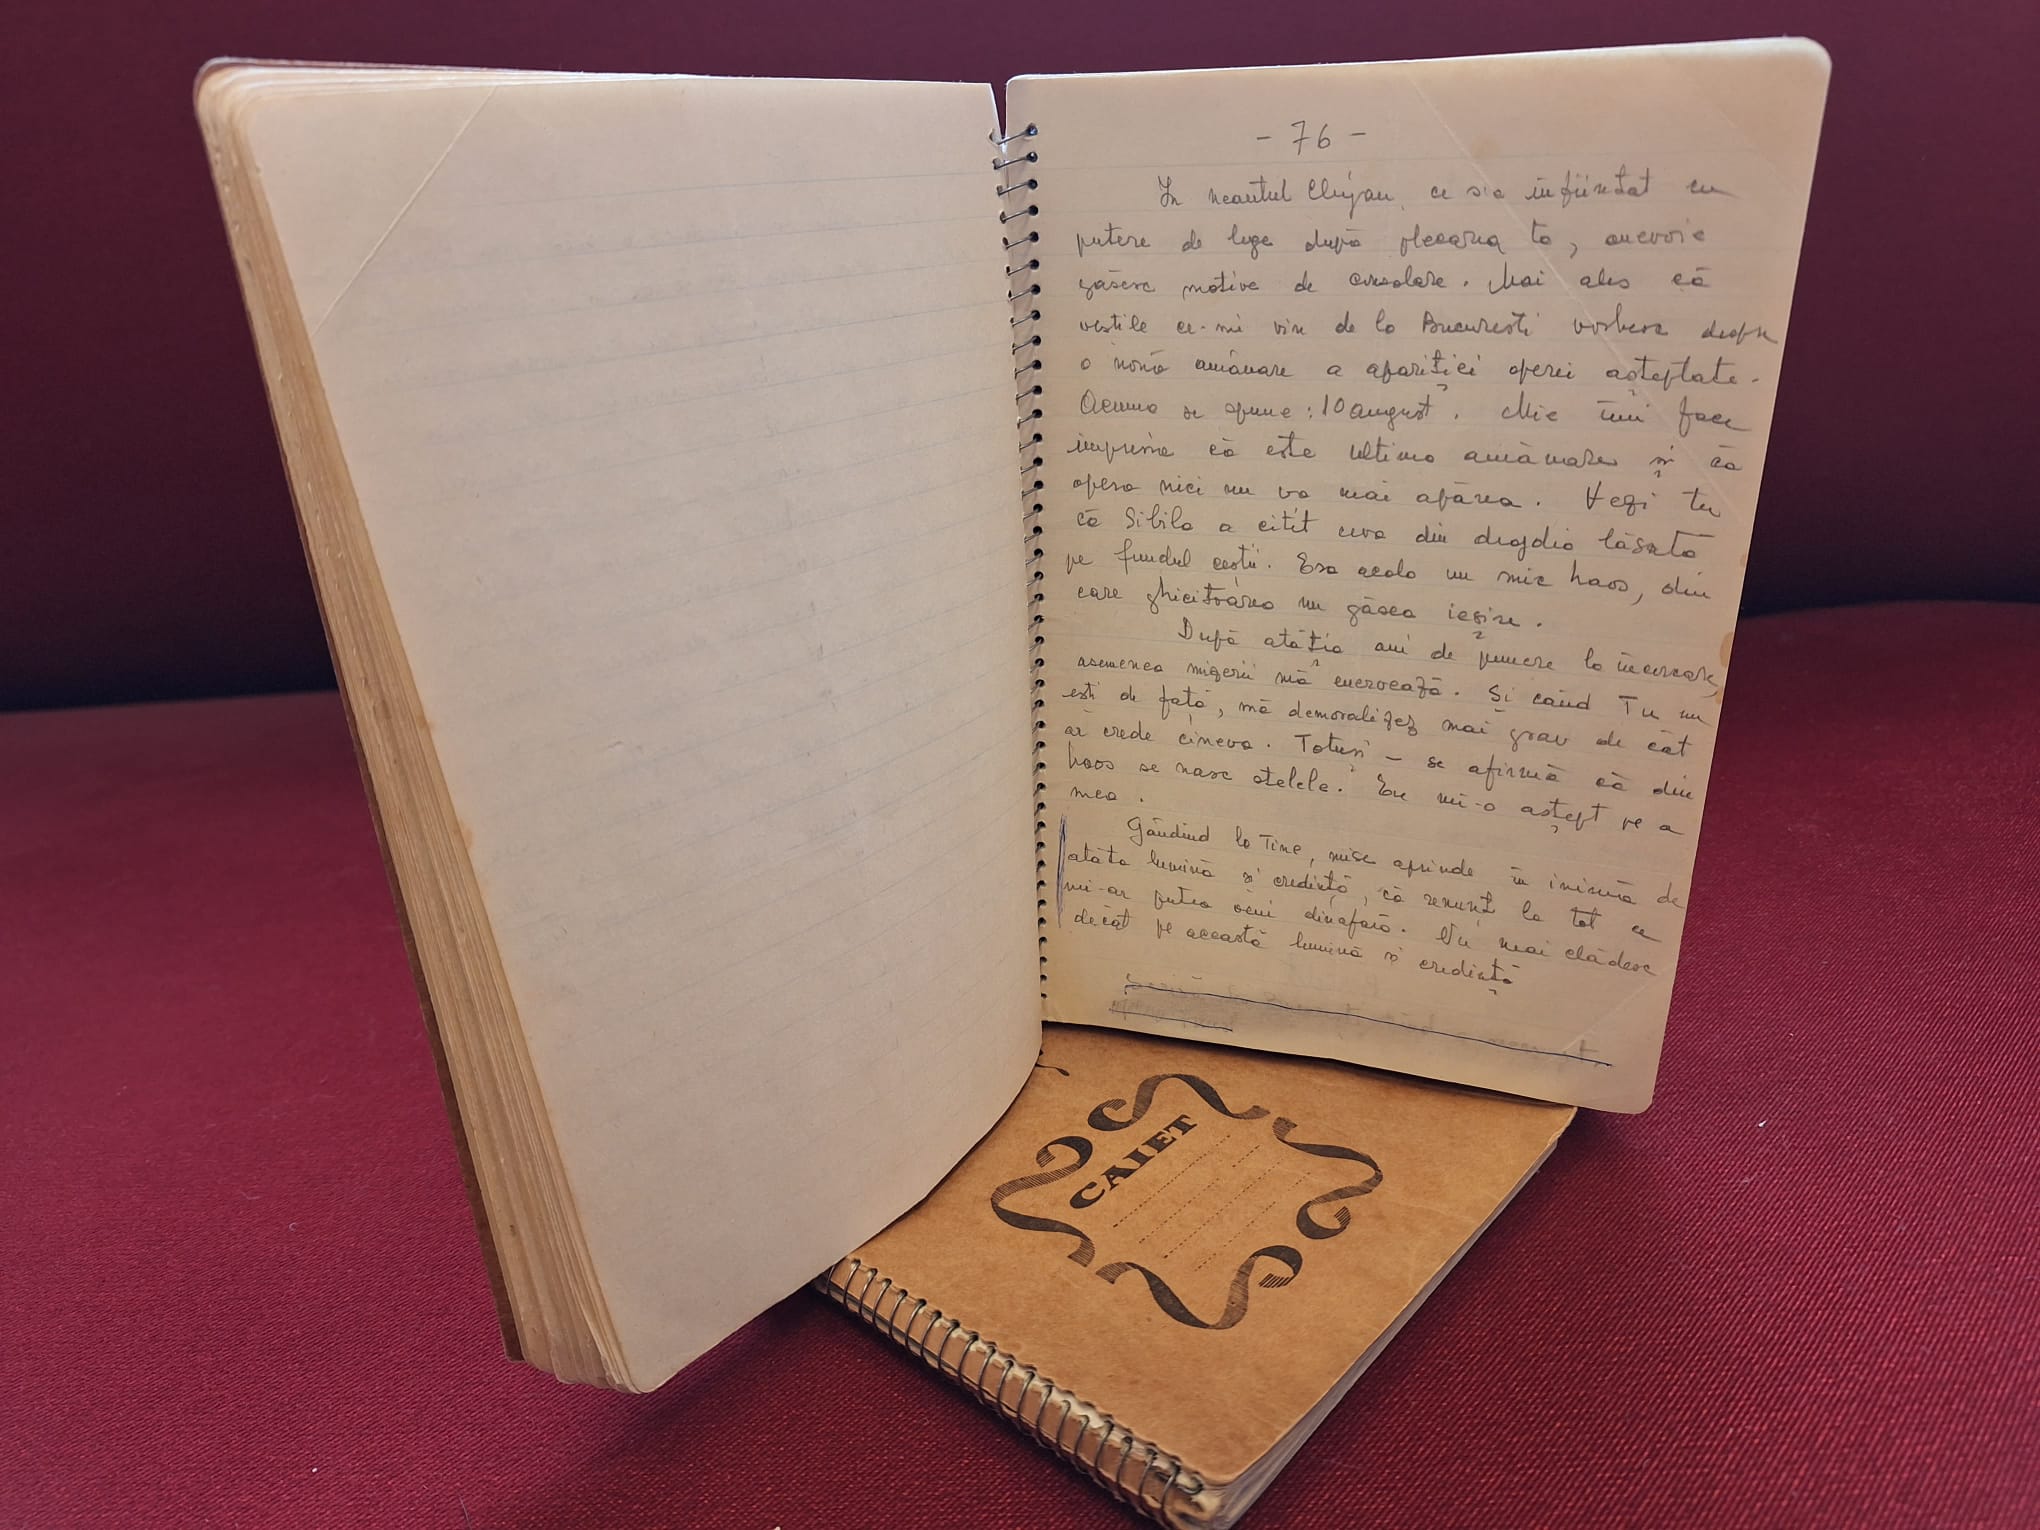 - 76 -
In neantul Clujan, ce s-a înființat cu
putere de lege după plecarea ta, anevoie
găsesc motive de consolare. Mai ales că
vestile ce-mi vin de la Bucuresti vorbesc despre
o nouă amânare a apariției operei așteptate.
Acuma se spune: 10 august. Mie îmi face
impresia că este ultima amânare și că
opera nici nu va mai apărea. Vezi tu
că Sibila a citit ceva din drojdia lăsată
pe fundul ceștii. Era acolo un mic haos, din
care ghicitoarea nu găsea ieșire.
După atâția ani de punere la încercare,
asemenea mizerii mă enervează. Și când Tu nu
ești de față, mă demoralizez mai grav de cât
ar crede cineva. Totuși - se afirmă că din
haos se nasc stelele. Eu mi-o aștept pe a
mea.
Gândind la Tine, mi se aprinde în inimă de
atâta lumină și credință, că renunț la tot ce
mi-ar putea veni dinafară. Nu mai clădesc
decât pe această lumină și credință
CAIET